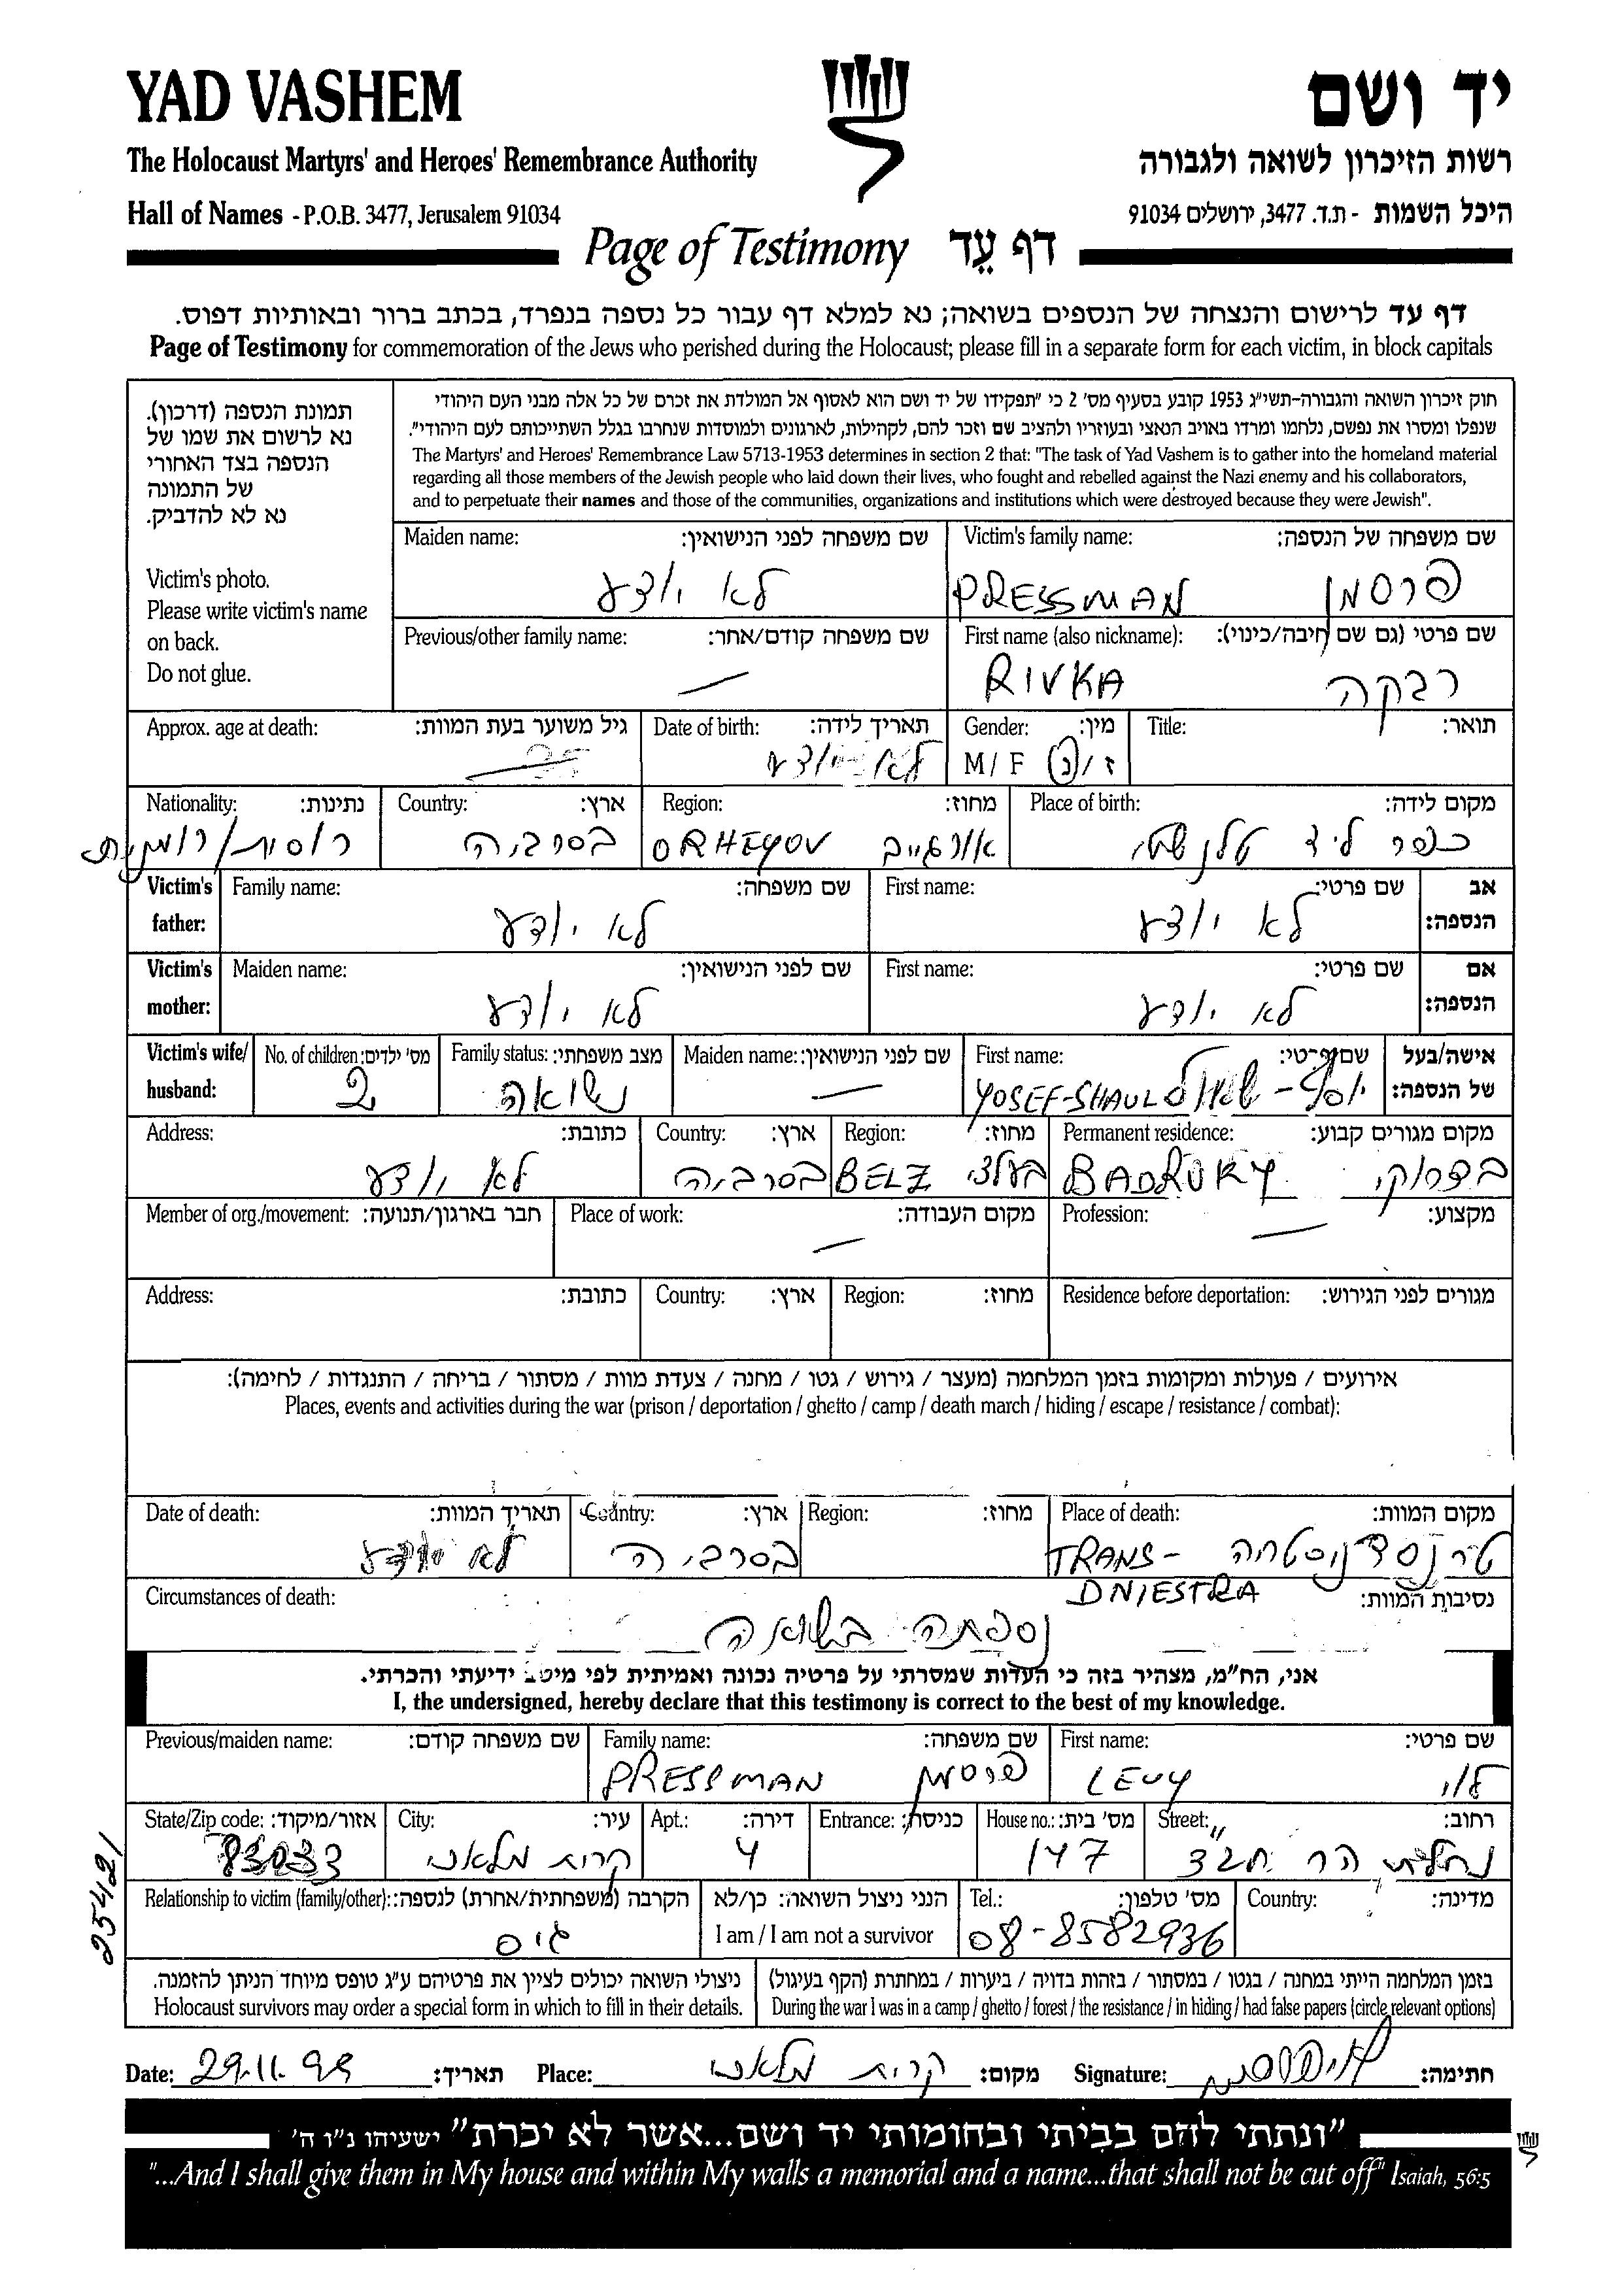 YAD VASHEM
יד ושם
The Holocaust Martyrs' and Heroes' Remembrance Authority
רשות הזיכרון לשואה ולגבורה
Hall of Names - P.O.B. 3477, Jerusalem 91034
היכל השמות - ת.ד. 3477, ירושלים 91034
Page of Testimony דף עֵד
דף עד לרישום והנצחה של הנספים בשואה; נא למלא דף עבור כל נספה בנפרד, בכתב ברור ובאותיות דפוס.
Page of Testimony for commemoration of the Jews who perished during the Holocaust; please fill in a separate form for each victim, in block capitals
תמונת הנספה (דרכון).
נא לרשום את שמו של
הנספה בצד האחורי
של התמונה
נא לא להדביק.
Victim's photo.
Please write victim's name
on back.
Do not glue.
חוק זיכרון השואה והגבורה-תשי"ג 1953 קובע בסעיף מס' 2 כי "תפקידו של יד ושם הוא לאסוף אל המולדת את זכרם של כל אלה מבני העם היהודי
שנפלו ומסרו את נפשם, נלחמו ומרדו באויב הנאצי ובעוזריו ולהציב שם וזכר להם, לקהילות, לארגונים ולמוסדות שנחרבו בגלל השתייכותם לעם היהודי".
The Martyrs' and Heroes' Remembrance Law 5713-1953 determines in section 2 that: "The task of Yad Vashem is to gather into the homeland material
regarding all those members of the Jewish people who laid down their lives, who fought and rebelled against the Nazi enemy and his collaborators,
and to perpetuate their names and those of the communities, organizations and institutions which were destroyed because they were Jewish".
Victim's family name: שם משפחה של הנספה:
PRESSMAN פרסמן
Maiden name: שם משפחה לפני הנישואין:
לא יודע
First name (also nickname): שם פרטי (גם שם חיבה/כינוי):
RIVKA רבקה
Previous/other family name: שם משפחה קודם/אחר:
—
Title: תואר:
Gender: מין:
M / F ז / נ
Date of birth: תאריך לידה:
לא יודע
Approx. age at death: גיל משוער בעת המוות:
Place of birth: מקום לידה:
כפר ליד טלנשטי
Region: מחוז:
ORHEYOV אורגייב
Country: ארץ:
בסרביה
Nationality: נתינות:
רוסית/רומנית
Victim's father: אב הנספה:
First name: שם פרטי:
לא יודע
Family name: שם משפחה:
לא יודע
Victim's mother: אם הנספה:
First name: שם פרטי:
לא יודע
Maiden name: שם לפני הנישואין:
לא יודע
Victim's wife/ husband: אישה/בעל של הנספה:
First name: שם פרטי:
YOSEF-SHAUL יוסף-שאול
Maiden name: שם לפני הנישואין:
—
Family status: מצב משפחתי:
נשואה
No. of children: מס' ילדים:
2
Permanent residence: מקום מגורים קבוע:
BADRUKY בדרוקי
Region: מחוז:
BELZ בעלצי
Country: ארץ:
בסרביה
Address: כתובת:
לא יודע
Profession: מקצוע:
—
Place of work: מקום העבודה:
—
Member of org./movement: חבר בארגון/תנועה:
Residence before deportation: מגורים לפני הגירוש:
Region: מחוז:
Country: ארץ:
Address: כתובת:
אירועים / פעולות ומקומות בזמן המלחמה (מעצר / גירוש / גטו / מחנה / צעדת מוות / מסתור / בריחה / התנגדות / לחימה):
Places, events and activities during the war (prison / deportation / ghetto / camp / death march / hiding / escape / resistance / combat):
Place of death: מקום המוות:
TRANS- DNIESTRA טרנסדניסטריה
Region: מחוז:
Country: ארץ:
בסרביה
Date of death: תאריך המוות:
לא יודע
Circumstances of death: נסיבות המוות:
נספתה בשואה
אני, הח"מ, מצהיר בזה כי העדות שמסרתי על פרטיה נכונה ואמיתית לפי מיטב ידיעתי והכרתי.
I, the undersigned, hereby declare that this testimony is correct to the best of my knowledge.
First name: שם פרטי:
LEVY לוי
Family name: שם משפחה:
PRESSMAN פרסמן
Previous/maiden name: שם משפחה קודם:
Street: רחוב:
נחלת הר חב"ד
House no.: מס' בית:
147
Entrance: כניסה:
Apt.: דירה:
4
City: עיר:
קרית מלאכי
State/Zip code: אזור/מיקוד:
83033
25421
Country: מדינה:
Tel.: מס' טלפון:
08-8582936
הנני ניצול השואה: כן/לא
I am / I am not a survivor
Relationship to victim (family/other): הקרבה (משפחתית/אחרת) לנספה:
גיס
בזמן המלחמה הייתי במחנה / בגטו / במסתור / בזהות בדויה / ביערות / במחתרת (הקף בעיגול)
During the war I was in a camp / ghetto / forest / the resistance / in hiding / had false papers (circle relevant options)
ניצולי השואה יכולים לציין את פרטיהם ע"ג טופס מיוחד הניתן להזמנה.
Holocaust survivors may order a special form in which to fill in their details.
Date: 29.11.98 תאריך: Place: קרית מלאכי מקום: Signature: חתימה:
"ונתתי להם בביתי ובחומותי יד ושם...אשר לא יכרת" ישעיהו נ"ו ה'
"...And I shall give them in My house and within My walls a memorial and a name...that shall not be cut off" Isaiah, 56:5